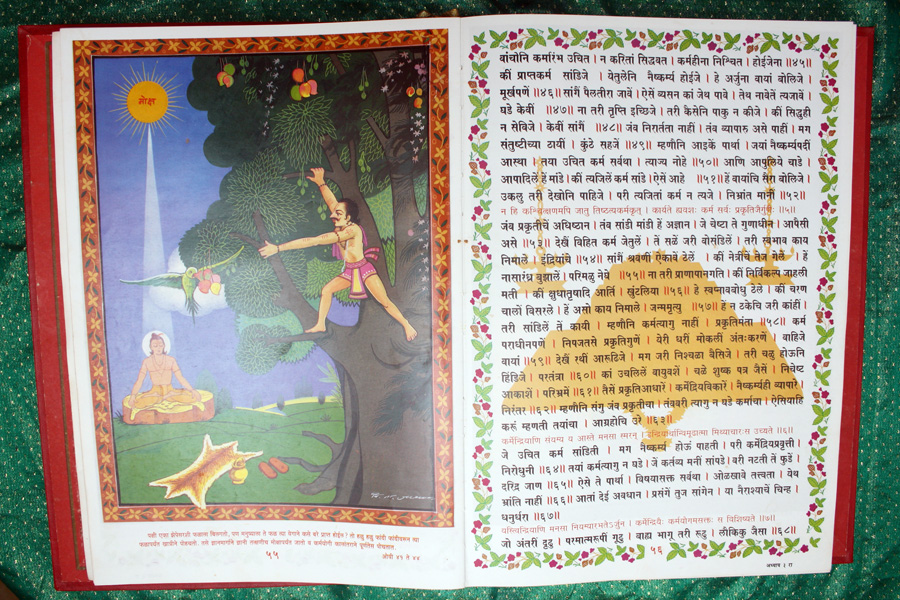 मोक्ष
पक्षी एका झेपेसरशी फळाला बिलगतो, पण मनुष्याला ते फळ त्या वेगाने कसे बरे प्राप्त होईल ? तो हळू हळू फांदी फांदीवरून त्या
फळापर्यंत खात्रीने पोंचतो. तसे ज्ञानमार्गाने ज्ञानी तत्क्षणीच मोक्षापर्यंत जातो व कर्मयोगी कालांतराने पूर्णतेस पोंचतात.
५५
ओवी ४१ ते ४४
वांचोनि कर्मारंभ उचित । न करितां सिद्धवत । कर्महीना निश्चित । होईजेना ॥४५॥
कीं प्राप्तकर्म सांडिजे । येतुलेनि नैष्कर्म्य होईजे । हे अर्जुना वायां बोलिजे ।
मूर्खपणें ॥४६॥ सांगें पैलतीरा जावें । ऐसें व्यसन कां जेथ पावे । तेथ नावेतें त्यजावें ।
घडे केवीं ॥४७॥ ना तरी तृप्ति इच्छिजे । तरी कैसेनि पाकु न कीजे । कीं सिद्धुही
न सेविजे । केवीं सांगैं ॥४८॥ जंव निरार्तता नाहीं । तंव व्यापारु असे पाहीं । मग
संतुष्टीच्या ठायीं । कुंठे सहजें ॥४९॥ म्हणौनि आइकें पार्था । जयां नैष्कर्म्यपदीं
आस्था । तया उचित कर्म सर्वथा । त्याज्य नोहे ॥५०॥ आणि आपुलिये चाडे ।
आपादिलें हें मांडे । कीं त्यजिलें कर्म सांडे । ऐसें आहे ॥५१॥ हें वायांचि सैरा बोलिजे ।
उकलु तरी देखोनि पाहिजे । परी त्यजितां कर्म न त्यजे । निभ्रांत मानीं ॥५२॥
न हि कश्चित्क्षणमपि जातु तिष्ठत्यकर्मकृत् । कार्यते ह्यवशः कर्म सर्वः प्रकृतिजैर्गुणैः ॥५॥
जंव प्रकृतीचें अधिष्ठान । तंव सांडी मांडी हें अज्ञान । जे चेष्टा ते गुणाधीन । आपैसी
असे ॥५३॥ देखें विहित कर्म जेतुलें । तें सळें जरी वोसंडिलें । तरी स्वभाव काय
निमाले । इंद्रियांचे ॥५४॥ सांगैं श्रवणीं ऐकावें ठेलें । कीं नेत्रींचें तेज गेलें । हें
नासारंध्र बुझालें । परिमळु नेघे ॥५५॥ ना तरी प्राणापानगति । कीं निर्विकल्प जाहली
मती । कीं क्षुधातृषादि आर्ति । खुंटलिया ॥५६॥ हे स्वप्नावबोधु ठेले । कीं चरण
चालों विसरले । हें असो काय निमाले । जन्ममृत्यु ॥५७॥ हें न ठकेचि जरी कांहीं ।
तरी सांडिलें तें कायी । म्हणौनि कर्मत्यागु नाहीं । प्रकृतिमंता ॥५८॥ कर्म
पराधीनपणें । निपजतसे प्रकृतिगुणें । येरी धरीं मोकली अंतःकरणें । वाहिजे
वायां ॥५९॥ देखें रथीं आरूढिजे । मग जरी निश्चळा बैसिजे । तरी चळु होऊनि
हिंडिजे । परतंत्रा ॥६०॥ कां उचलिलें वायुवशें । चळे शुष्क पत्र जैसें । निचेष्ट
आकाशें । परिभ्रमे ॥६१॥ तैसें प्रकृतिआधारें । कर्मेंद्रियविकारें । नैष्कर्म्यही व्यापारे ।
निरंतर ॥६२॥ म्हणौनि संगु जंव प्रकृतीचा । तंववरी त्यागु न घडे कर्माचा । ऐसियाहि
करूं म्हणती तयांचा । आग्रहोचि उरे ॥६३॥
कर्मेंद्रियाणि संयम्य य आस्ते मनसा स्मरन् । इन्द्रियार्थान्विमूढात्मा मिथ्याचारःस उच्यते ॥६॥
जे उचित कर्म सांडिती । मग नैष्कर्म्य होऊं पाहती । परी कर्मेंद्रियप्रवृत्ती ।
निरोधुनी ॥६४॥ तयां कर्मत्यागु न घडे । जें कर्तव्य मनीं सांपडे । वरी नटती तें फुडें ।
दरिद्र जाण ॥६५॥ ऐसे ते पार्था । विषयासक्त सर्वथा । ओळखावे तत्त्वता । येथ
भ्रांति नाहीं ॥६६॥ आतां देईं अवधान । प्रसंगें तुज सांगेन । या नैराश्याचें चिन्ह ।
धनुर्धरा ॥६७॥
यस्त्विन्द्रियाणि मनसा नियम्यारभतेऽर्जुन । कर्मेन्द्रियैः कर्मयोगमसक्तः स विशिष्यते ॥७॥
जो अंतरीं दृढु । परमात्मरूपीं गूढु । बाह्य भागू तरी रूढु । लौकिकु जैसा ॥६८॥
५६
अध्याय ३ रा